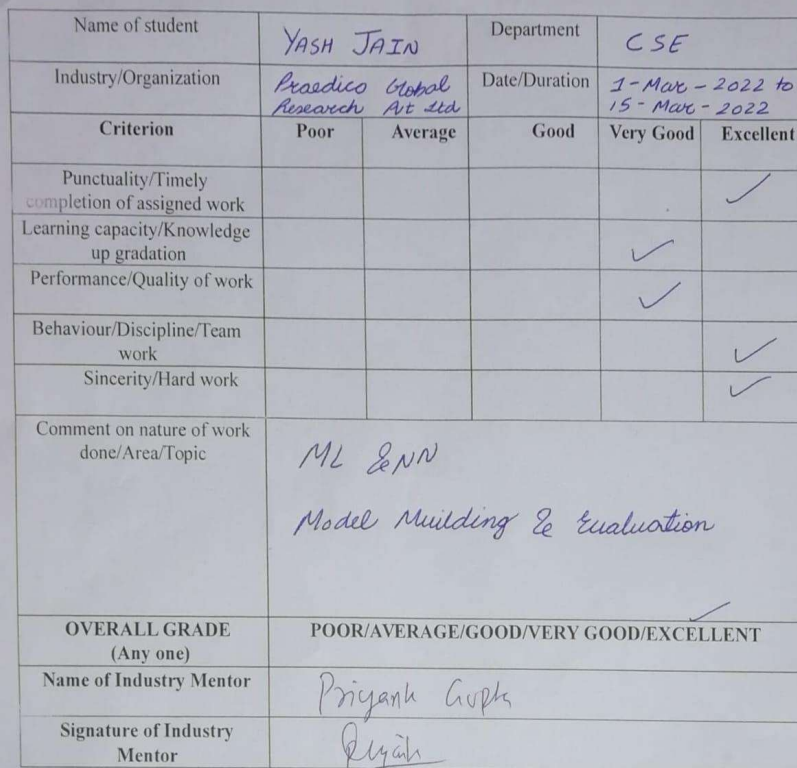 Name of student
YASH JAIN
Department
CSE
Industry/Organization
Praedico Global
Research Pvt Ltd
Date/Duration
1-Mar-2022 to
15-Mar-2022
Criterion
Poor
Average
Good
Very Good
Excellent
Punctuality/Timely
completion of assigned work
✓
Learning capacity/Knowledge
up gradation
✓
Performance/Quality of work
✓
Behaviour/Discipline/Team
work
✓
Sincerity/Hard work
✓
Comment on nature of work
done/Area/Topic
ML & NN
Model Muilding & Evaluation
✓
OVERALL GRADE
(Any one)
POOR/AVERAGE/GOOD/VERY GOOD/EXCELLENT
Name of Industry Mentor
Priyank Gupta
Signature of Industry
Mentor